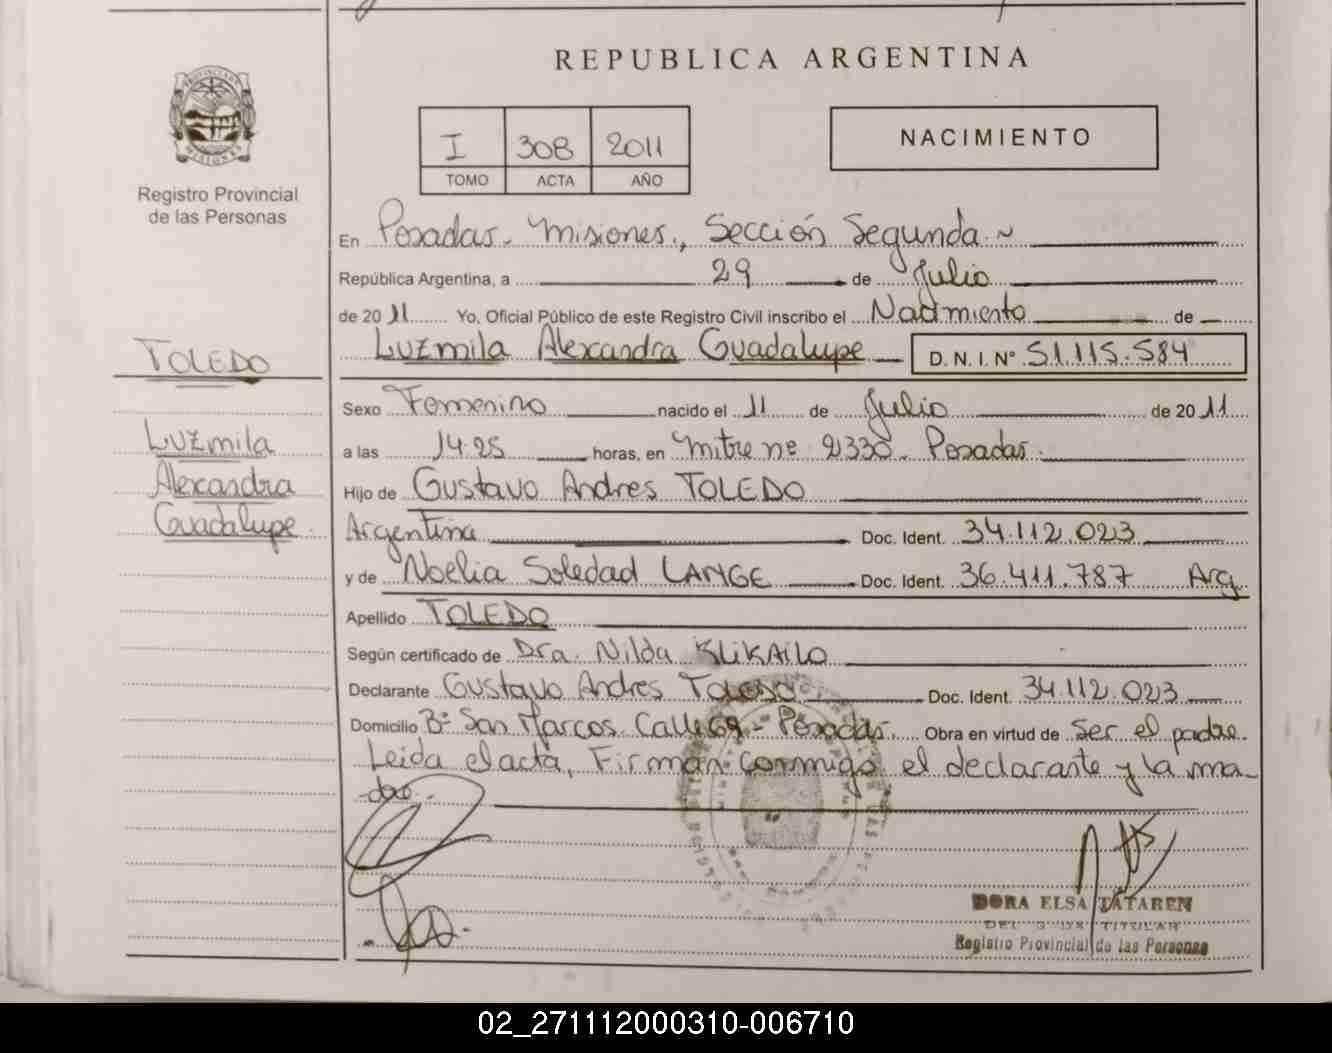 REPUBLICA ARGENTINA
I 308 2011
TOMO ACTA AÑO
NACIMIENTO
PROVINCIA DE
MISIONES
Registro Provincial
de las Personas
En Posadas - Misiones, Sección Segunda
República Argentina, a 29 de Julio
de 2011 Yo, Oficial Público de este Registro Civil inscribo el Nacimiento de
Luzmila Alexandra Guadalupe D. N. I. Nº 51.115.584
TOLEDO
Luzmila
Alexandra
Guadalupe
Sexo Femenino nacido el 11 de Julio de 2011
a las 14.25 horas, en Mitre nº 2330 - Posadas.
Hijo de Gustavo Andres TOLEDO
Argentina Doc. Ident. 34.112.023
y de Noelia Soledad LANGE Doc. Ident. 36.411.787 Arg.
Apellido TOLEDO
Según certificado de Dra. Nilda KLIKAILO
Declarante Gustavo Andres TOLEDO Doc. Ident. 34.112.023
Domicilio Bº San Marcos Calle 69 - Posadas. Obra en virtud de Ser el padre.
Leida el acta, Firman conmigo el declarante y la ma-
dre.
DORA ELSA TATAREN
TITULAR
Registro Provincial de las Personas
02_271112000310-006710